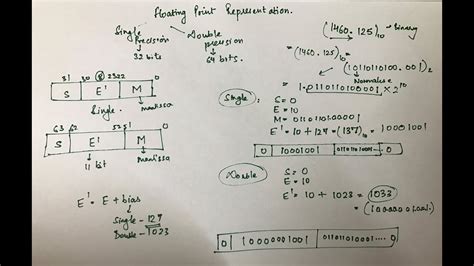 Floating Point Representation.
Single Precision
32 bits
Double precision
64 bits.
31 30 8 23 22 0
S E' M
Single. mantissa
63 62 52 51 0
S E' M
11 bit mantissa
E' = E + bias
Single - 127
Double - 1023
(1460.125)10 - binary
= (1460.125)10
= (10110110100.001)2
Normalise
1.0110110100001 × 2^10
Single:
S = 0
E = 10
M = 0110110100001
E' = 10 + 127 = (137)10 = 10001001
0 10001001 0110110100001.... 0
Double:
S = 0
E = 10
E' = 10 + 1023 = 1033
(10000001001)
0 10000001001 0110110100001.... 0